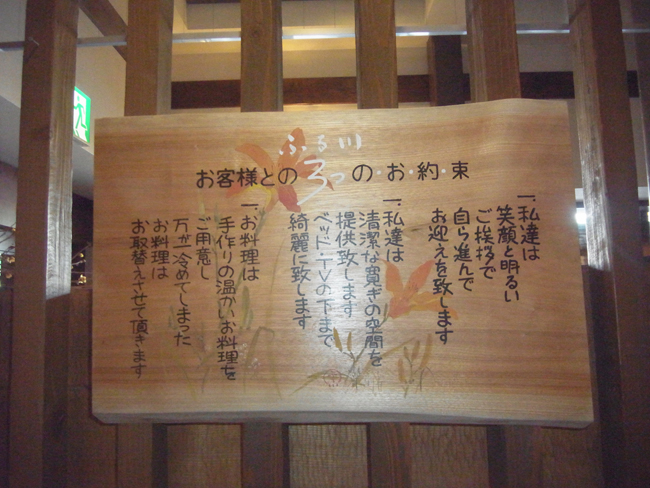 ふる川
お客様との3つのお・約・束
一.私達は
笑顔と明るい
ご挨拶で
自ら進んで
お迎えを致します
一.私達は
清潔な寛ぎの空間を
提供致します
ベッド、TVの下まで
綺麗に致します
一.お料理は
手作りの温かいお料理を
ご用意し
万が一冷めてしまった
お料理は
お取替えさせて頂きます